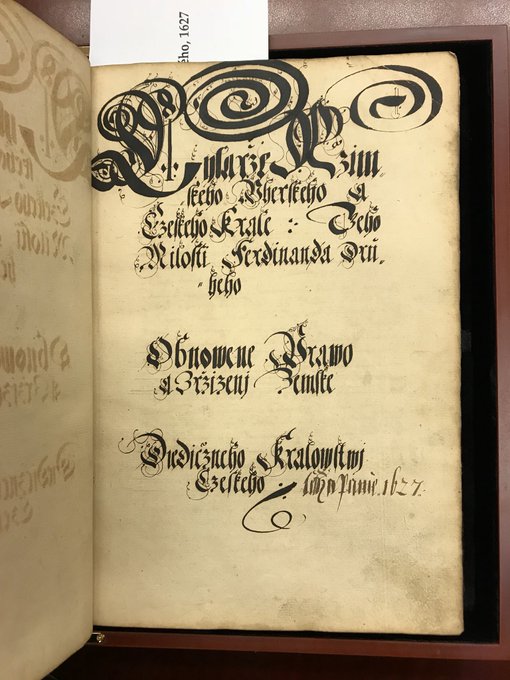 ého, 1627
Cysarže Ržim-
skeho Vherskeho a
Czeskeho Krale :· Geho
Milosti Ferdinanda Dru-
-heho
Obnowene Prawo
a Zržizenj Zemske
Diedičzneho Kralowstwj
Czeskeho : Leta Panie 1627.